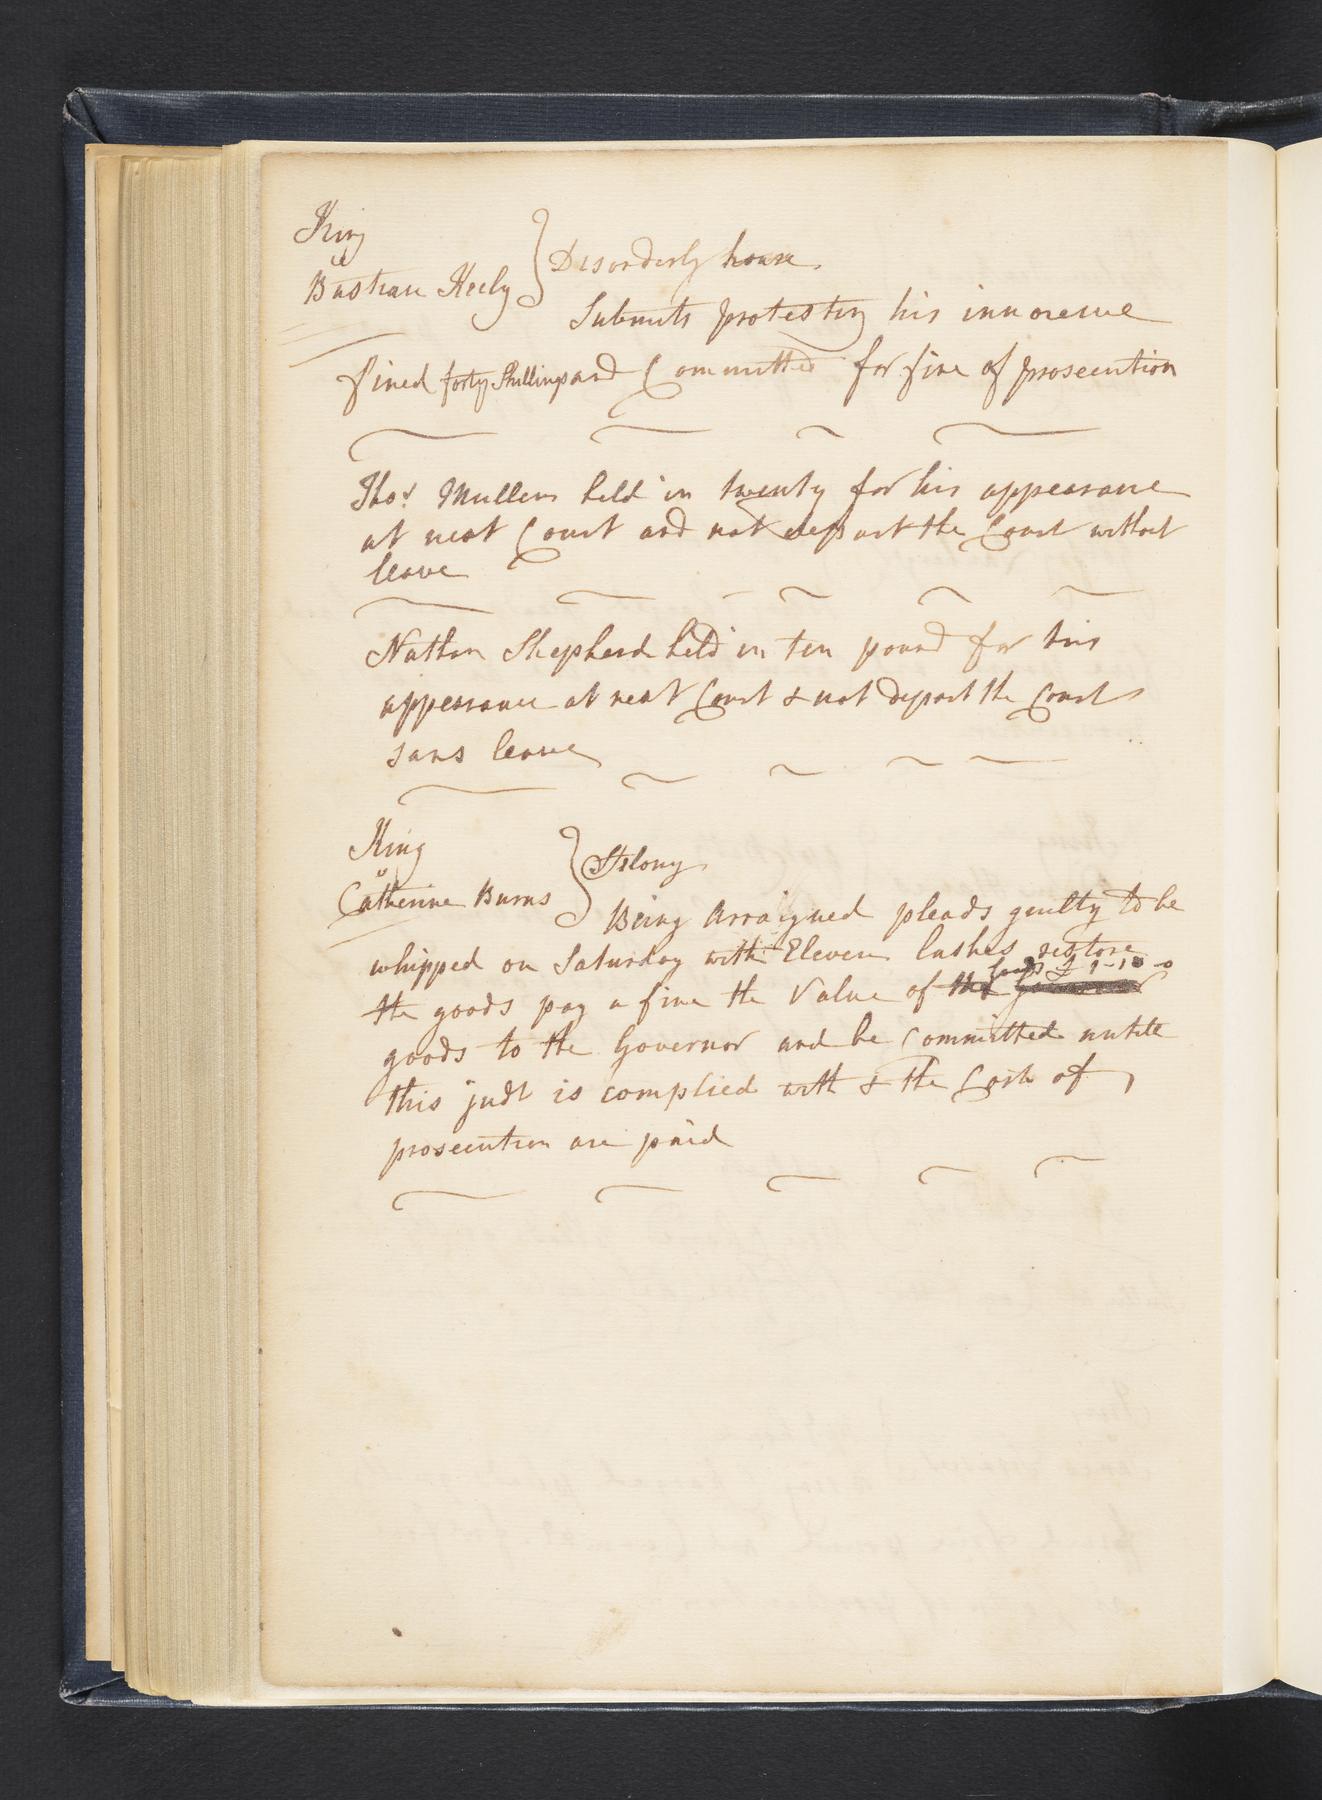 King
v
Bastian Keely } Disorderly house
Submits protesting his innocence
fined forty Shillings and Committed for fine of prosecution
Thos Mullen held in twenty for his appearance
at next Court and not depart the Court without
leave
Nathan Shepherd held in ten pound for his
appearance at next Court & not depart the Court
sans leave
King
v
Catherine Burns } Felony
Being Arraigned pleads guilty to be
whipped on Saturday with Eleven lashes restore
goods £ 1-10-0
the goods pay a fine the Value of the
goods to the Governor and be Committed untill
this judt is complied with & the Costs of
prosecution are paid